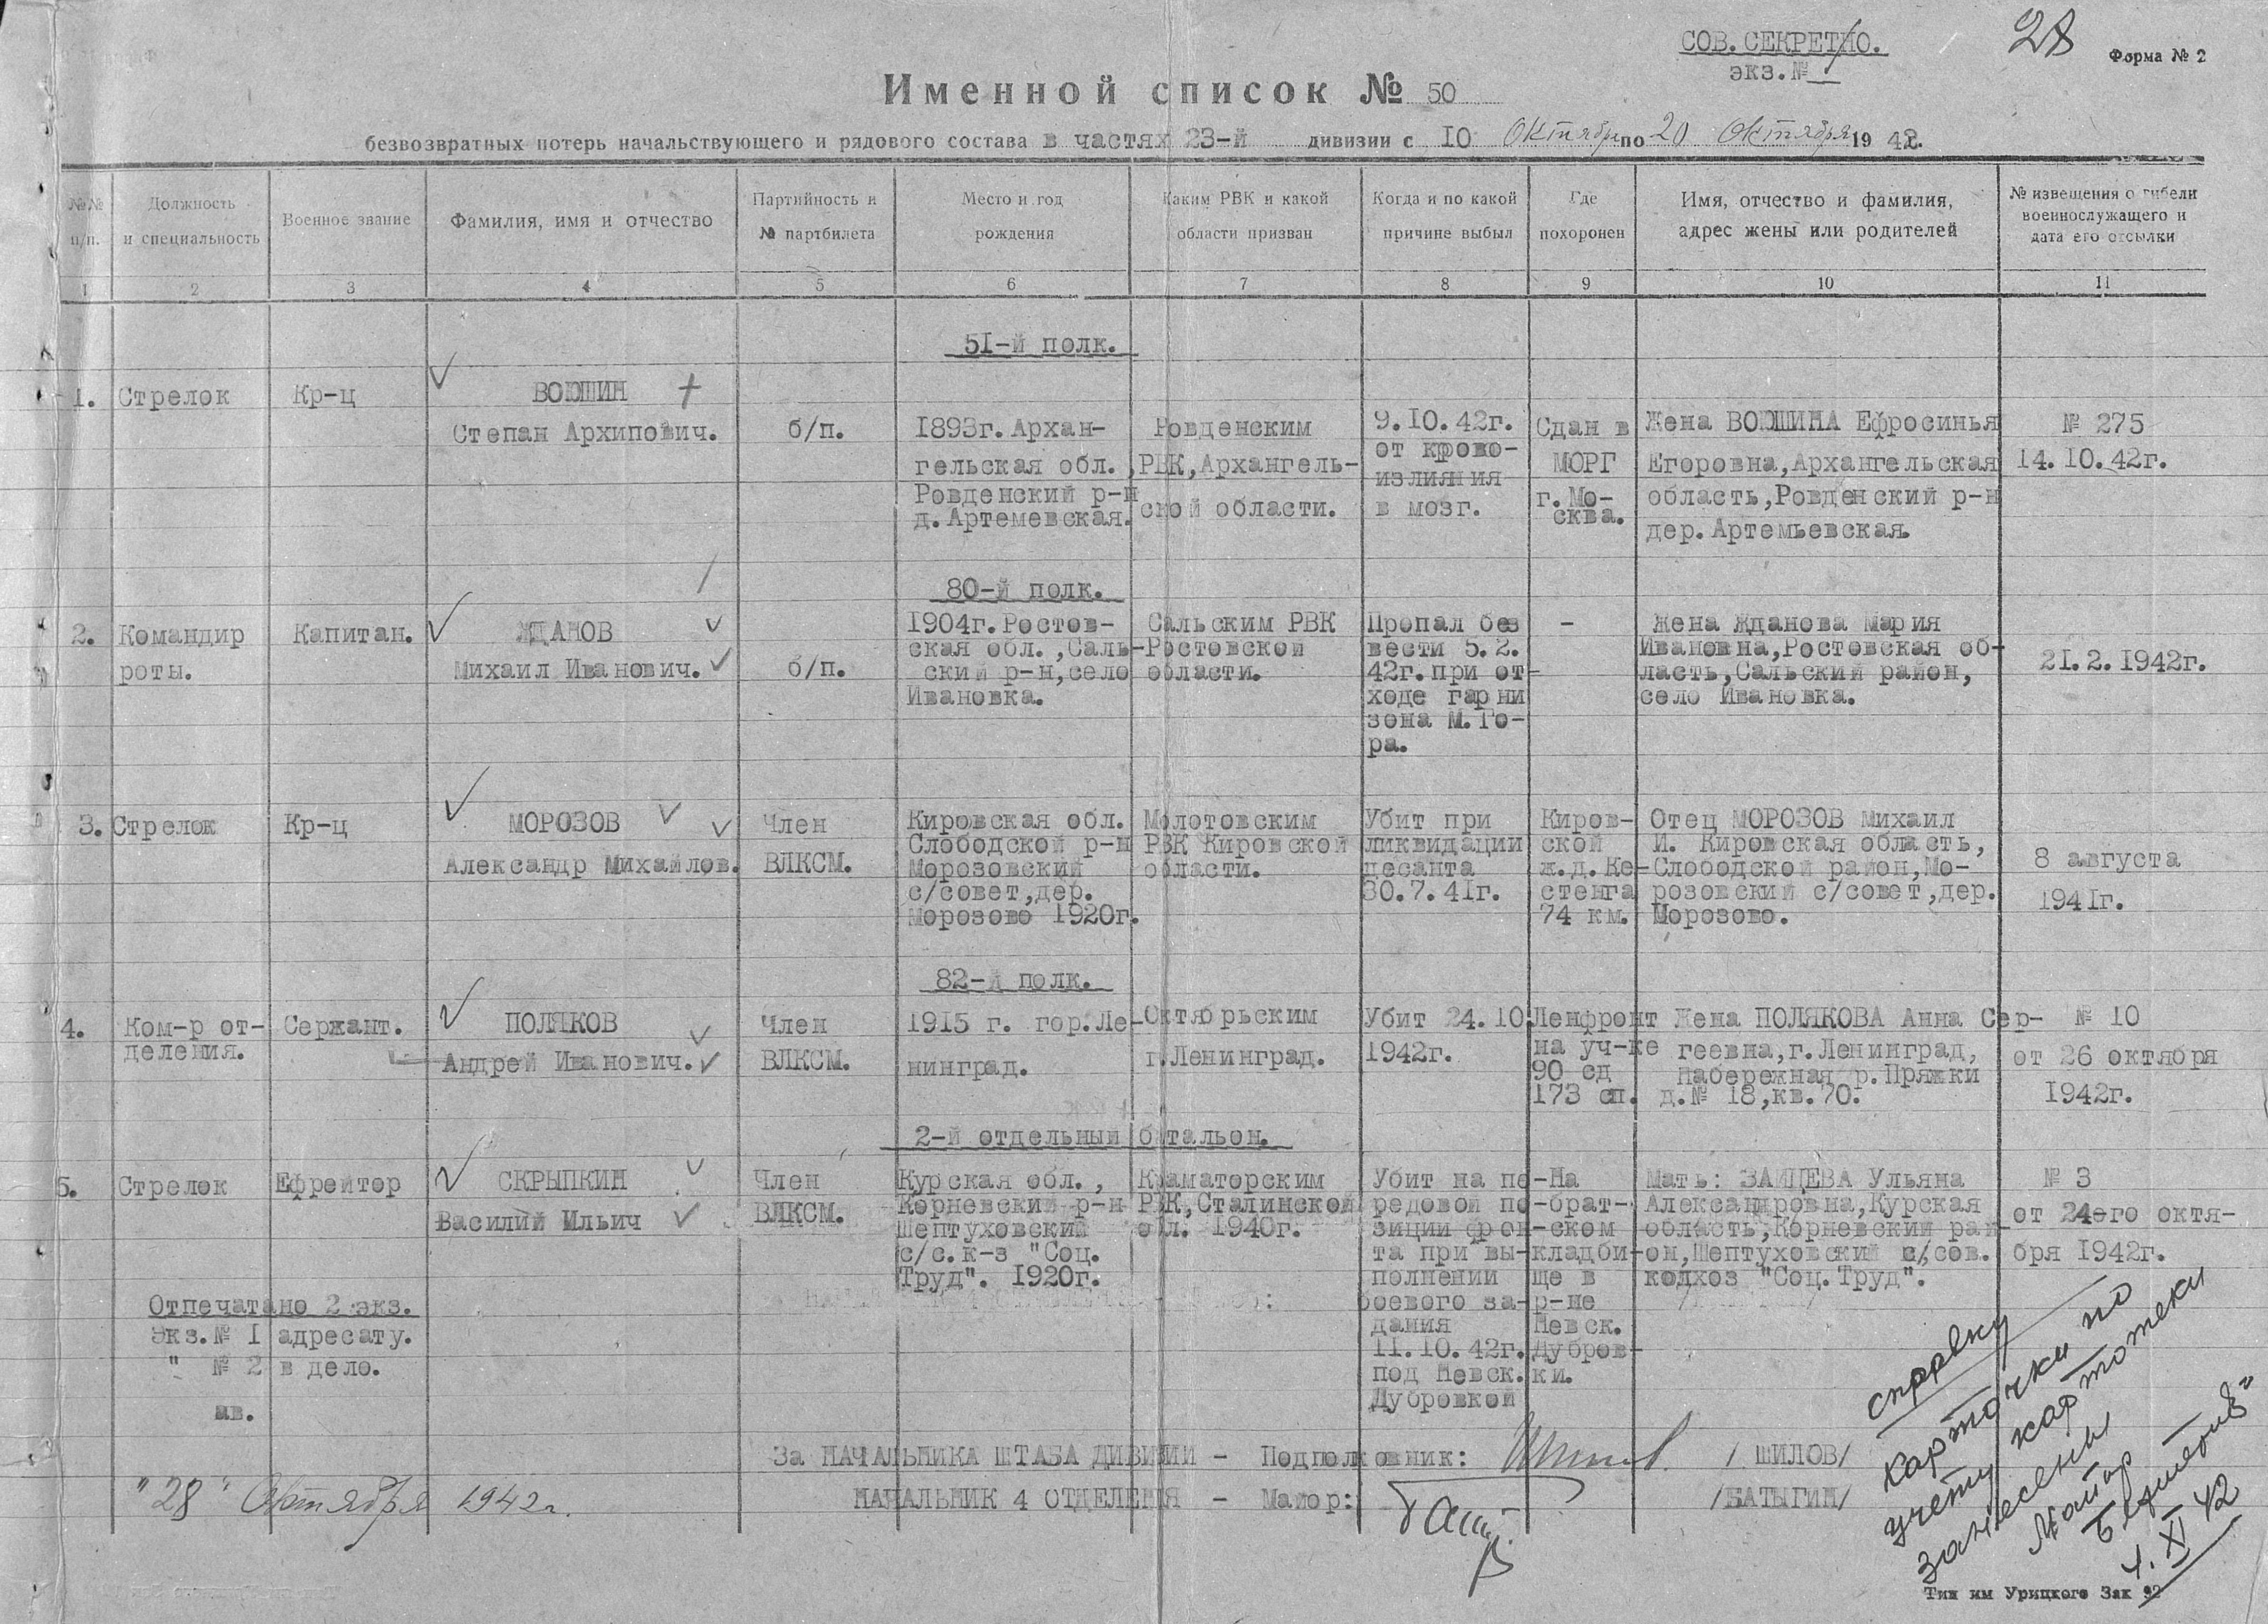 СОВ. СЕКРЕТНО.
экз.№ 1
28
Форма № 2
Именной список № 50
безвозвратных потерь начальствующего и рядового состава в частях 23-й дивизии с 10 Октября по 20 Октября 1942г.
№№ п/п.
Должность и специальность
Военное звание
Фамилия, имя и отчество
Партийность и № партбилета
Место и год рождения
Каким РВК и какой области призван
Когда и по какой причине выбыл
Где похоронен
Имя, отчество и фамилия, адрес жены или родителей
№ извещения о гибели военнослужащего и дата его отсылки
1 2 3 4 5 6 7 8 9 10 11
51-й полк.
1.
Стрелок
Кр-ц
ВОЮШИН
Степан Архипович.
б/п.
1893г. Архан-
гельская обл.,
Ровденский р-н
д.Артемевская.
Ровденским
РВК,Архангель-
ской области.
9.10.42г.
от крово-
излияния
в мозг.
Сдан в
МОРГ
г.Мо-
сква.
Жена ВОЮШИНА Ефросинья
Егоровна,Архангельская
область,Ровденский р-н
дер.Артемьевская.
№ 275
14.10.42г.
80-й полк.
2.
Командир
роты.
Капитан.
ЖДАНОВ
Михаил Иванович.
б/п.
1904г.Ростов-
ская обл.,Саль-
ский р-н,село
Ивановка.
Сальским РВК
Ростовской
области.
Пропал без
вести 5.2.
42г.при от-
ходе гарни
зона М.Го-
ра.
-
Жена Жданова Мария
Ивановна,Ростовская об-
ласть,Сальский район,
село Ивановка.
21.2.1942г.
3.
Стрелок
Кр-ц
МОРОЗОВ
Александр Михайлов.
Член
ВЛКСМ.
Кировская обл.
Слободской р-н
Морозовский
с/совет,дер.
Морозово 1920г.
Молотовским
РВК Кировской
области.
Убит при
ликвидации
десанта
30.7.41г.
Киров-
ской
ж.д.Ке-
стенга
74 км.
Отец МОРОЗОВ Михаил
И. Кировская область,
Слободской район,Мо-
розовский с/совет,дер.
Морозово.
8 августа
1941г.
82-й полк.
4.
Ком-р от-
деления.
Сержант.
ПОЛЯКОВ
Андрей Иванович.
Член
ВЛКСМ.
1915 г. гор.Ле-
нинград.
Октябрьским
г.Ленинград.
Убит 24.10
1942г.
Ленфронт
на уч-ке
90 сд
173 сп.
Жена ПОЛЯКОВА Анна Сер-
геевна,г.Ленинград,
Набережная р.Пряжки
д.№ 18,кв.70.
№ 10
от 26 октября
1942г.
2-й отдельный батальон.
5.
Стрелок
Ефрейтор
СКРЫПКИН
Василий Ильич
Член
ВЛКСМ.
Курская обл.,
Корневский р-н
Шептуховский
с/с.к-з "Соц.
Труд". 1920г.
Краматорским
РВК,Сталинской
обл. 1940г.
Убит на пе-
редовой по-
зиции фрон-
та при вы-
полнении
боевого за-
дания
11.10.42г.
под Невск.
Дубровкой
На
брат-
ском
кладби-
ще в
р-не
Невск.
Дубров-
ки.
Мать: ЗАЙЦЕВА Ульяна
Александровна,Курская
область,Корневский рай-
он,Шептуховский с/сов.
колхоз "Соц.Труд".
№ 3
от 24-го октя-
бря 1942г.
Отпечатано 2 экз.
Экз.№ 1 адресату.
" № 2 в дело.
мв.
За НАЧАЛЬНИКА ШТАБА ДИВИЗИИ - Подполковник: /ШИЛОВ/
НАЧАЛЬНИК 4 ОТДЕЛЕНИЯ - Майор: /БАТЫГИН/
"28" Октября 1942г.
справку
Карточки по
учету картотеки
занесены
Майор
4.XI 42
Тип им Урицкого Зак 92